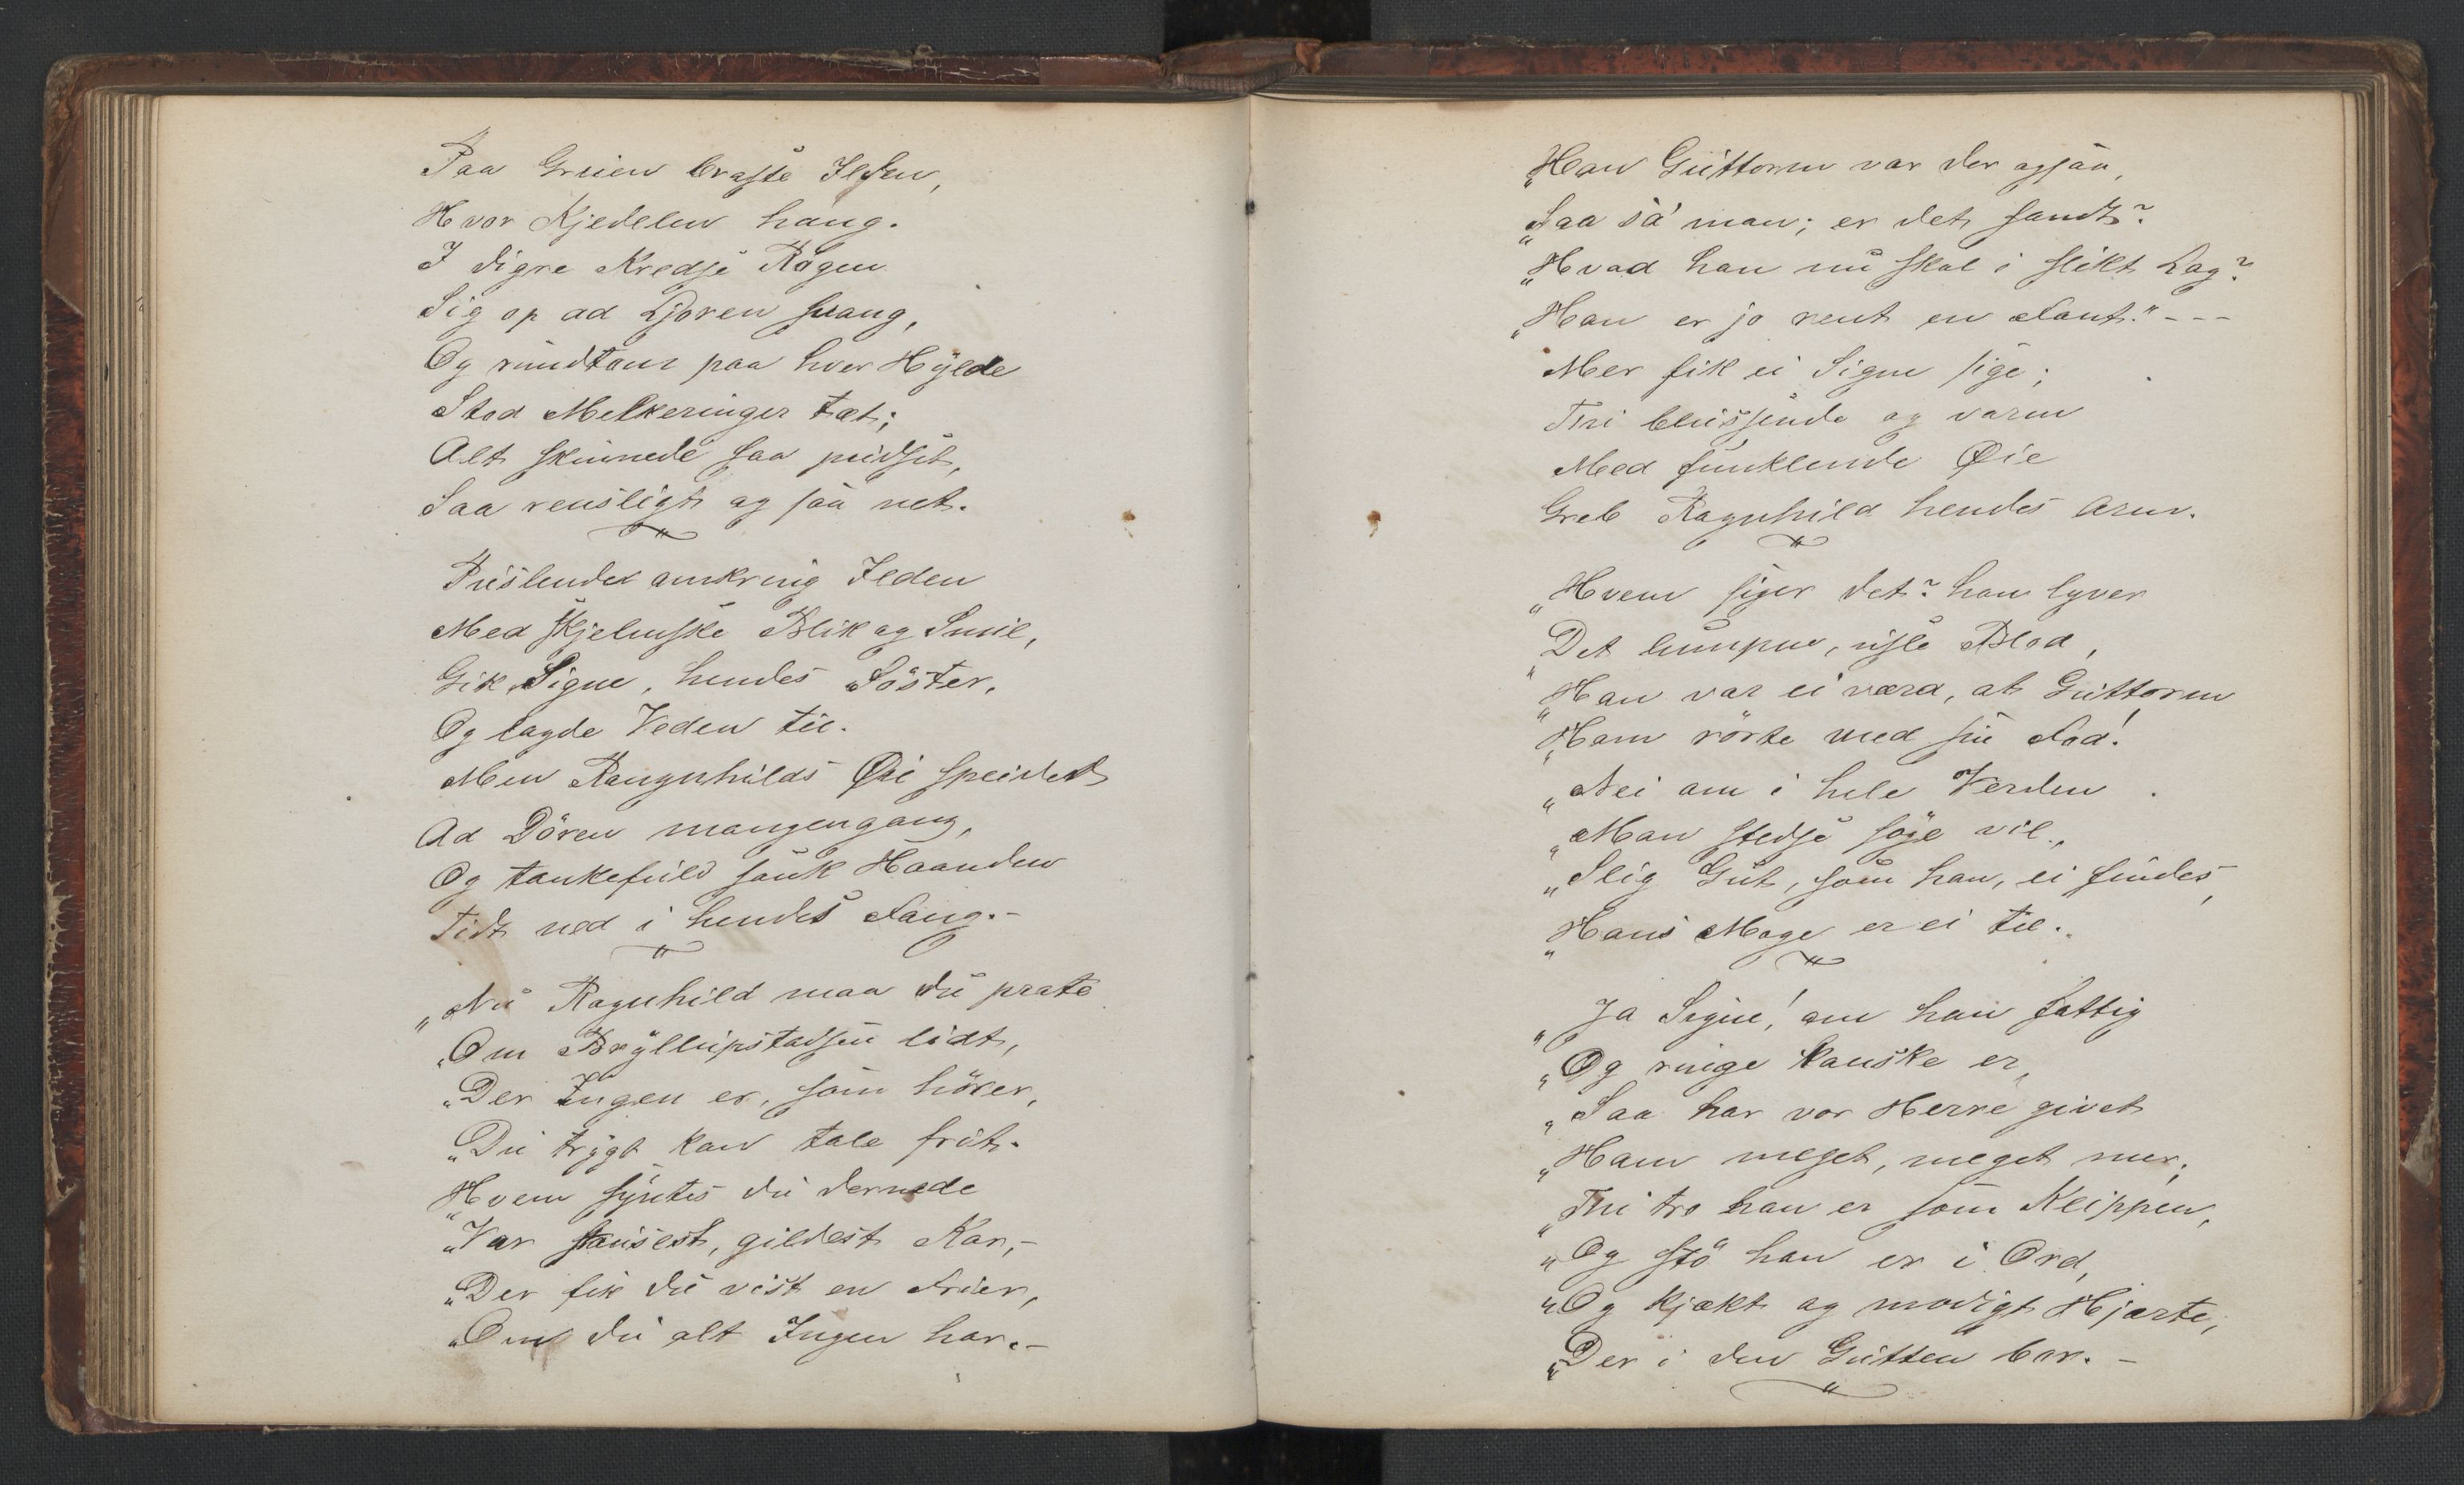 Paa Gruen braste Ilden,
Hvor Kjedelen hang.
I digre Kredse Rögen
Sig op ad Ljoren svang,
Og rundtom paa hver Hylde
Stod Melkeringer tæt;
Alt skinnede saa pudset,
Saa rensligt og saa net.
Puslende omkring Ilden
Med skjelmske Blik og Smil,
Gik Signe, hendes Söster,
Og lagde Veden til.
Men Rangnhilds Øie speidet
Ad Dören mangengang,
Og tankefuld sank Haanden
Tidt ned i hendes Fang.-
„Nu Ragnhild maa du prate
„Om Bryllupstadsen lidt,
„Der Ingen er, som hörer,
„Du trygt kan tale frit.
„Hvem syntes du dernede
„Var stausest, gildest Kar,-
„Der fik du vist en Frier,
„Om du alt Ingen har.-
„Han Guttorm var der ogsaa,
„Saa sa' man; er det sandt?
„Hvad han nu skal i slikt Lag?
„Han er jo rent en Fant." - - -
Mer fik ei Signe sige;
Thi blussende og varm
Med funklende Øie
Greb Ragnhild hendes Arm.
„Hvem siger det? han lyver
„Det lumpne, usle Blod,
„Han var ei værd, at Guttorm
„Ham rörte med sin Fod!
„Nei om i hele Verden
„Man stedse söge vil,
„Slig Gut, som han, ei findes,
„Hans Mage er ei til.
„Ja Signe! om han fattig
„Og ringe kanske er,
„Saa har vor Herre givet
„Ham meget, meget mer;
„Thi tro han er som Klippen,
„Og stö han er i Ord,
„Og kjækt og modigt Hjærte,
„Der i den Gutten bor. -